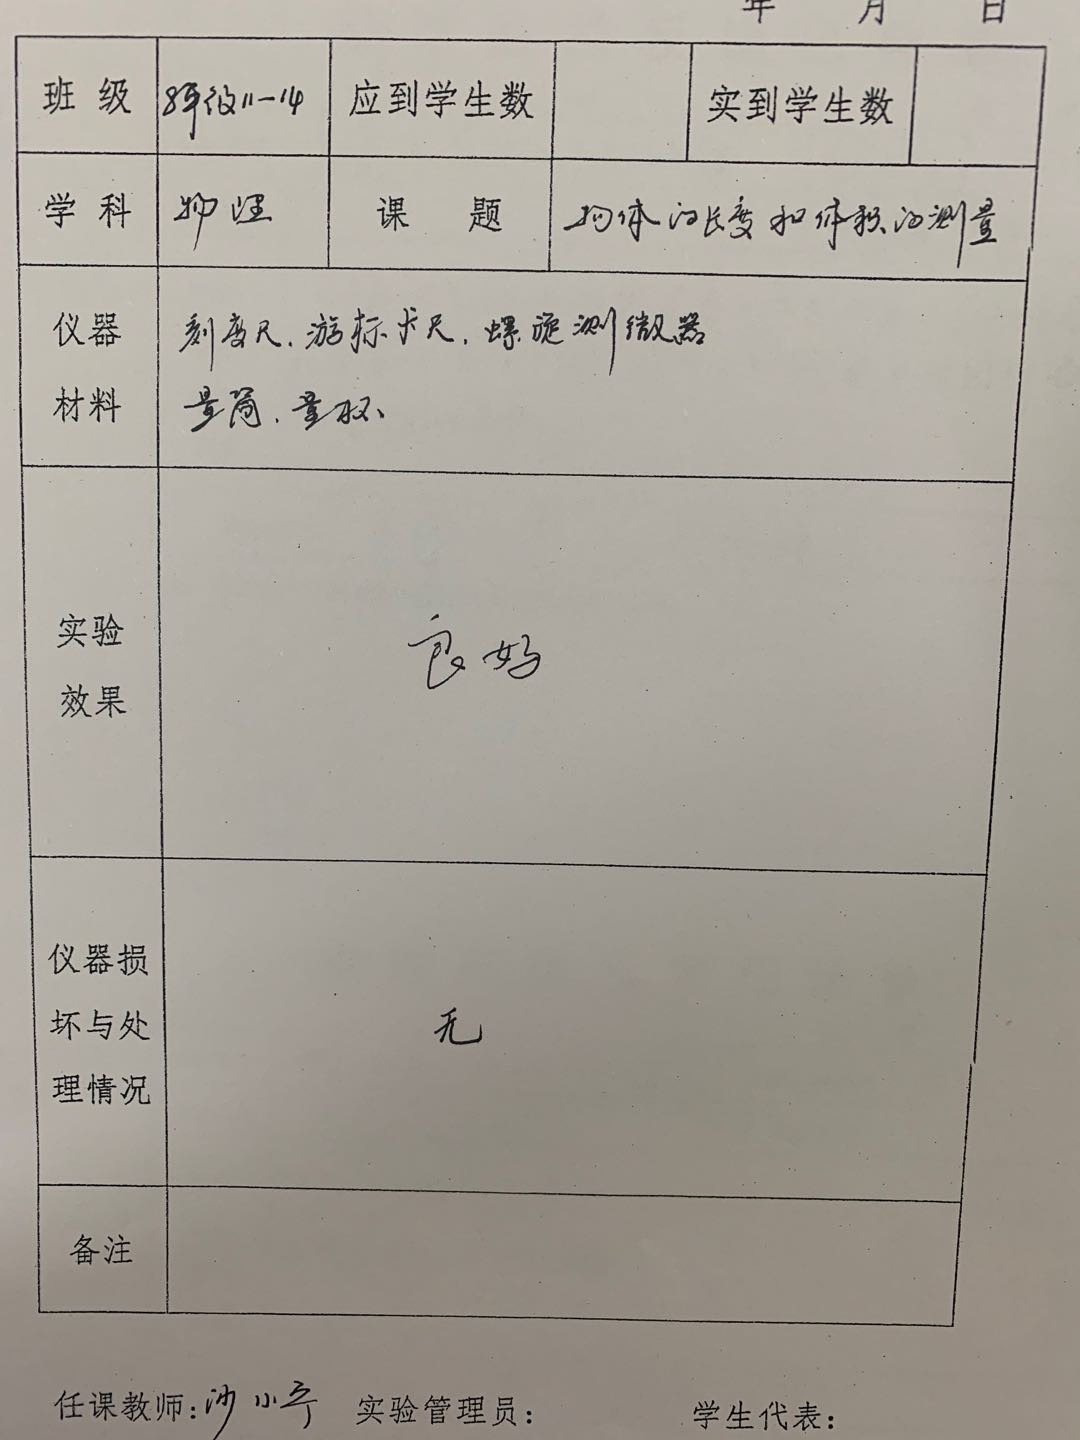 年 月 日
班级 8年级11-14 应到学生数 实到学生数
学科 物理 课题 物体的长度和体积的测量
仪器材料 刻度尺、游标卡尺、螺旋测微器
量筒、量杯、
实验效果 良好
仪器损坏与处理情况 无
备注
任课教师: 沙小 实验管理员: 学生代表: